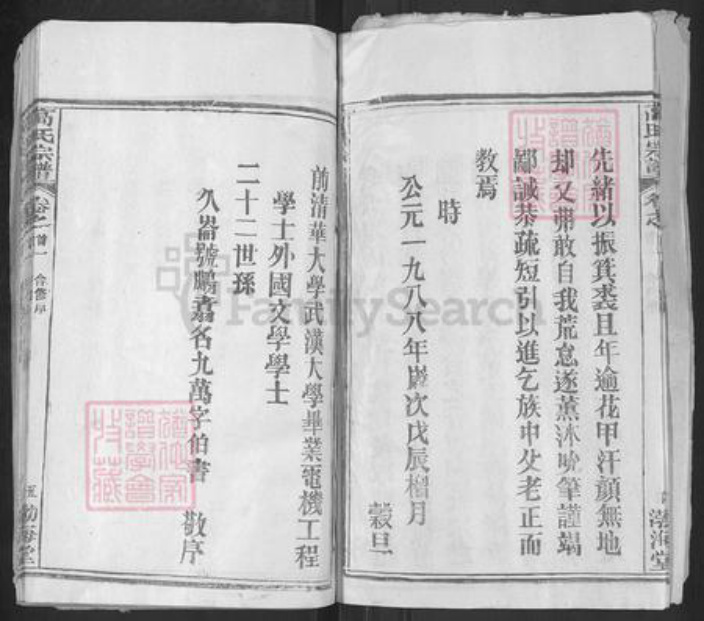 先緒以振箕裘且年逾花甲汗顏無地
却又弗敢自我荒怠遂薰沐吮筆謹竭
鄙誠恭疏短引以進乞族中父老正而
教焉
時
公元一九八八年歲次戊辰榴月
穀旦
前清華大學武漢大學畢業電機工程
學士外國文學學士
二十二世孫
久崙號鵬翥名九萬字伯書 敬序
高氏宗譜
卷之首一
合修序
五 渤海堂
高氏宗譜
渤海堂
FamilySearch